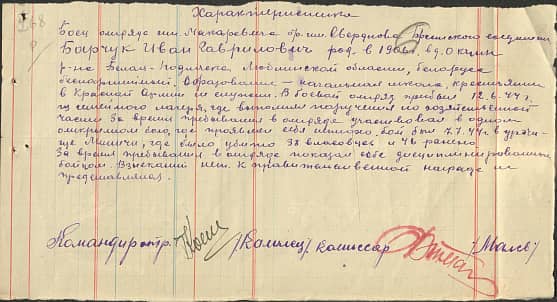 Характеристика
Боец отряда им. Макаревича бр. им. Свердлова Брестского соединения
Барчук Иван Гаврилович род. в 1908 г. в д. Окчин
р-на Белая-Подляска Люблинской области, белорус,
беспартийный. Образование – начальная школа, крестьянин
в Красной Армии не служил. В боевой отряд прибыл 12.V-44 г.
из семейного лагеря, где выполнял поручения по хозяйственной
части. За время пребывания в отряде участвовал в одном
открытом бою, где проявил себя неплохо. Бой был 7.7.44 г. в урочи-
ще, где было убито 38 власовцев и 46 ранено.
За время пребывания в отряде показал себя дисциплинированным
бойцом. Взысканий нет. К правительственной награде не
представлялся.
Командир отр. Комиссар